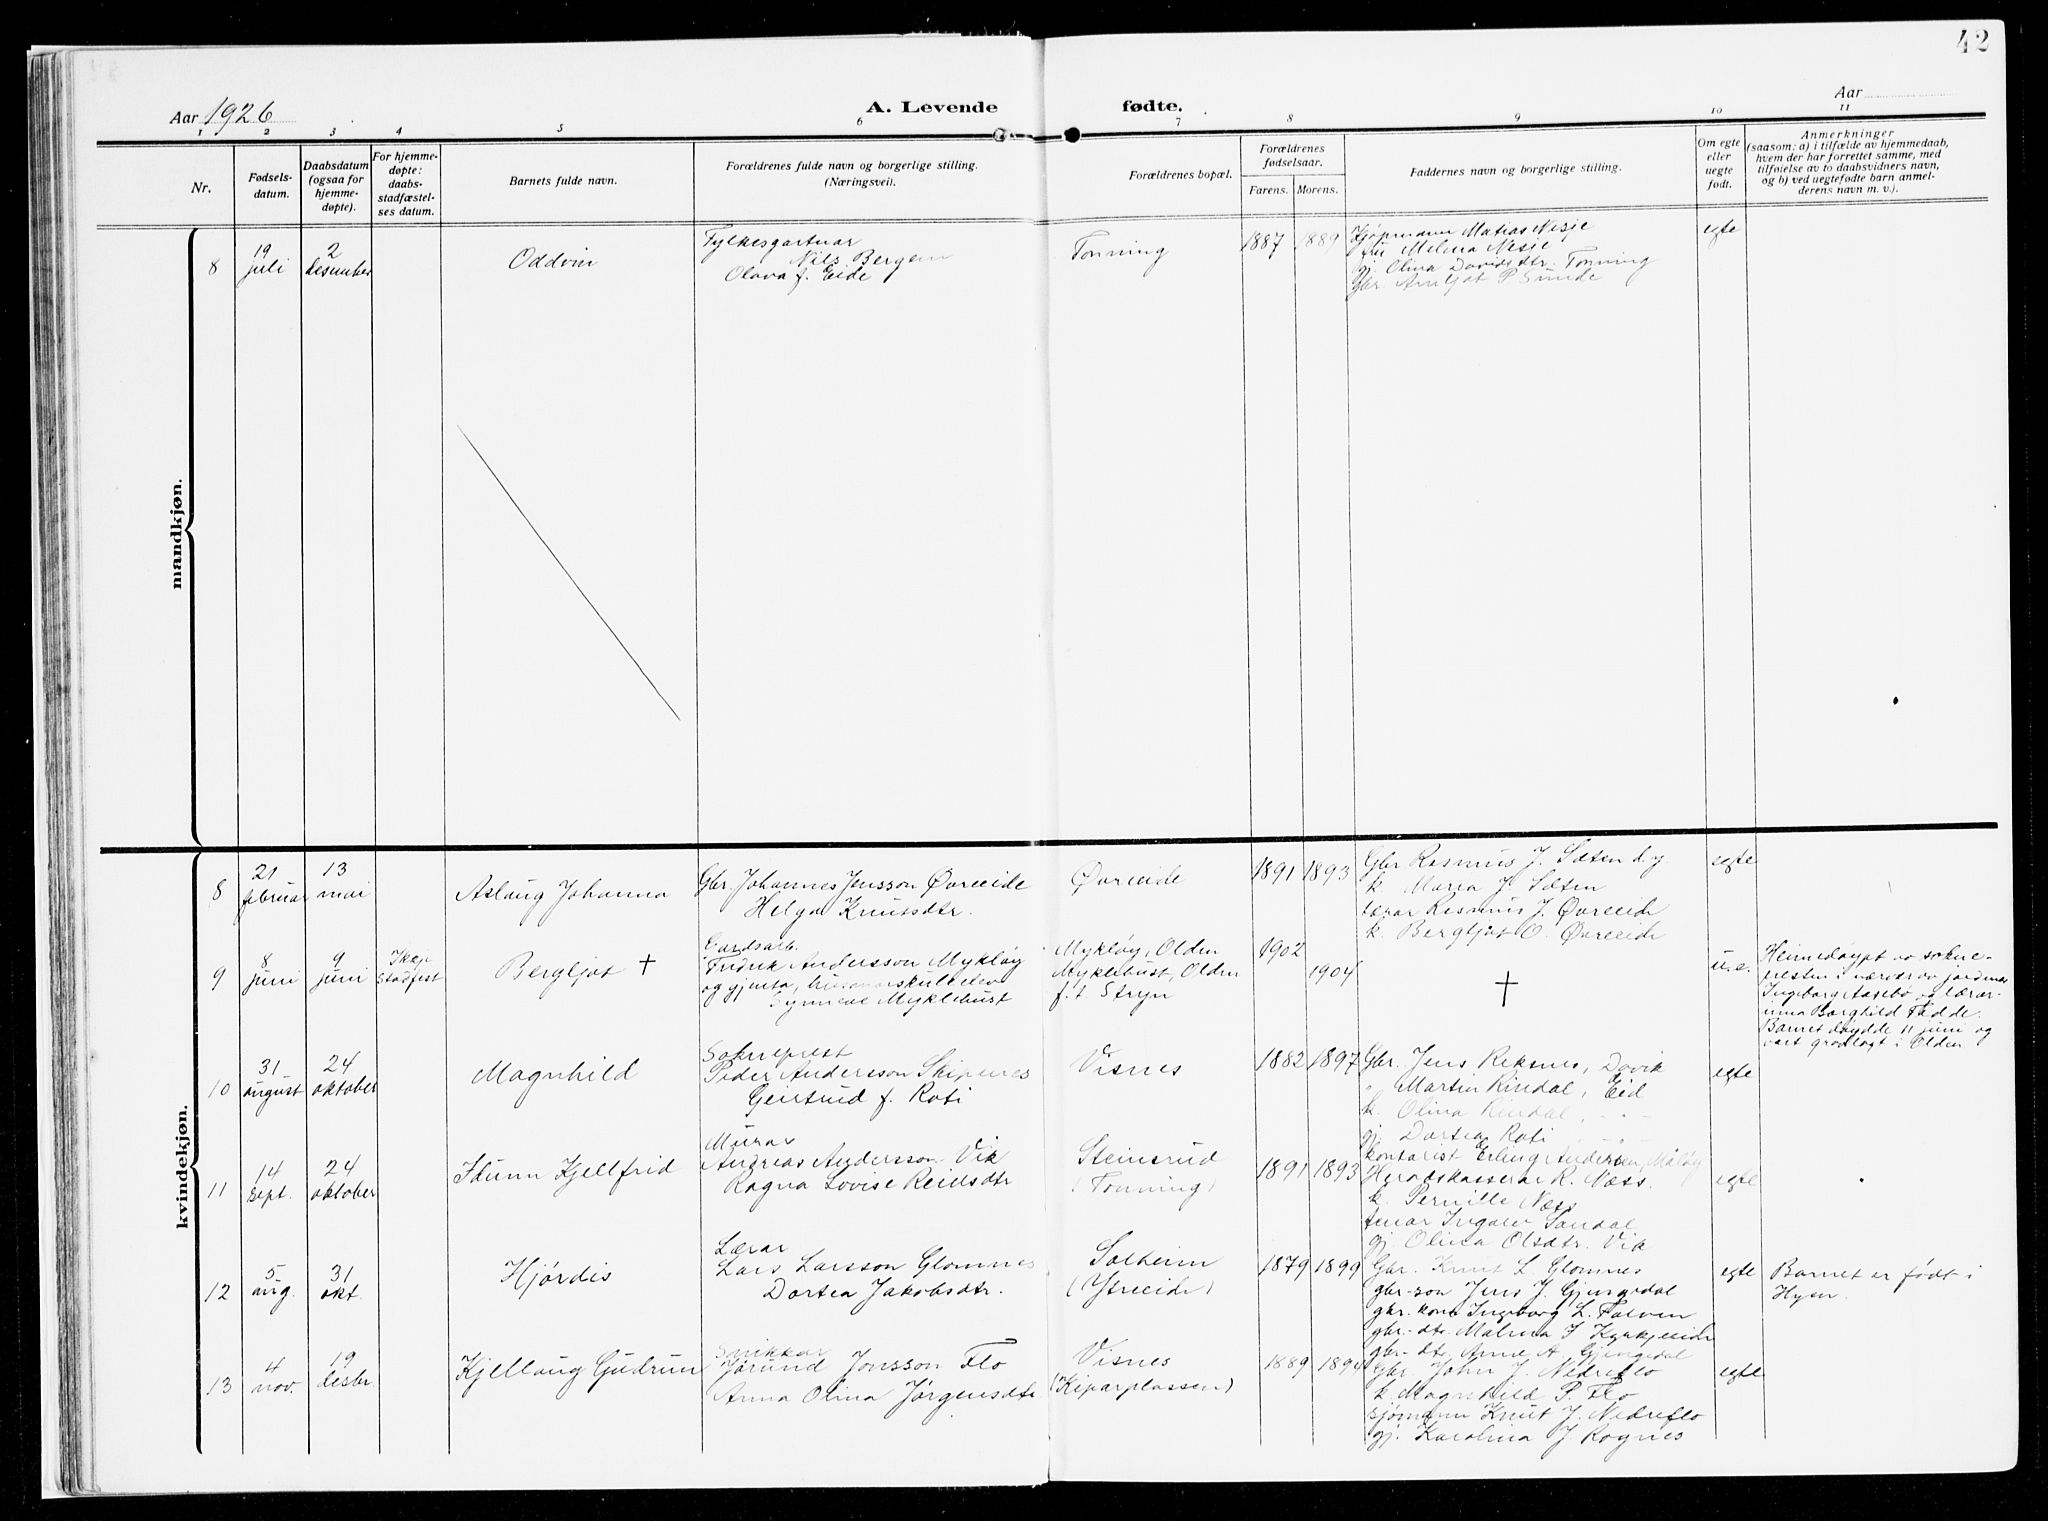 42
Aar 1926
A. Levende fødte.
Aar
1 2 3 4 5 6 7 8 9 10 11
Nr.
Fødsels-
datum.
Daabsdatum
(ogsaa for
hjemme-
døpte).
For hjemme-
døpte:
daabs-
stadfæstel-
ses datum.
Barnets fulde navn.
Forældrenes fulde navn og borgerlige stilling.
(Næringsvei).
Forældrenes bopæl.
Forældrenes
fødselsaar.
Farens. Morens.
Faddernes navn og borgerlige stilling.
Om egte
eller
uegte
født.
Anmerkninger
(saasom: a) i tilfælde av hjemmedaab,
hvem der har forrettet samme, med
tilføielse av to daabsvidners navn,
og b) ved uegtefødte barn anmel-
derens navn m. v.).
mandkjøn.
8
19
juli
2
desember
Oddvin
Fylkesgartnar
Nils Bergem
Olava f. Eide
Tonning
1887 1889
Kjøpmann Matias Nesje
fru Melina Nesje
gj. Olina Davidsdtr. Tonning
gbr. Arnljot P Sunde
egte
kvindekjøn.
8
21
februar
13
mai
Aslaug Johanna
Gbr. Johannes Jensson Øvreeide
Helga Knutsdtr.
Øvreeide
1891 1893
Gbr Rasmus J. Sæten d.y.
k. Maria J. Sæten
lærar Rasmus J. Øvreeide
k. Bergljot O. Øvreeide
egte
9
8
juni
9
juni
Ikkje
Stadfest
Bergljot †
Gardsarb.
Fredrik Andersson Mykløy
og gjenta, husmorskulelev
Synneve Myklebust
Mykløy, Olden
Myklebust, Olden
f.t Stryn
1902
1904
†
u.e.
Heimedøypt av sokne-
presten i nærvær av jordmor
Ingeborg Aasebø og lærar-
inna Borghild Fadde.
Barnet døydde 11 juni og
vart gravlagt i Olden
10
31
august
24
oktober
Magnhild
Sokneprest
Peder Andersson Skipenes
Geirtrud f. Roti
Visnes
1882 1897
Gbr. Jens Reksnes, Davik
" Martin Rindal, Eid
k. Olina Rindal, " -
gj. Dortea Roti
egte
11
14
sept.
24
oktober
Idunn Kjellfrid
Murar
Andreas Andersson Vik
Ragna Lovise Reidsdtr
Steinsrud
(Tonning)
1891 1893
kontorist Erling Andersen, Måløy
Heradskasserar R. Næss.
k. Pernille Næss
Ingolv Sandal
gj. Olina Olsdtr. Vik
egte
12
5
aug.
31
okt.
Hjørdis
Lærar
Lars Larsson Glomnes
Dortea Jakobsdtr.
Solheim
(Ytreeide)
1879 1899
Gbr. Knut L. Glomnes
gbr-son Jens J. Gjengedal
gbr. kona Ingeborg L. Taraven
gbr.-dtr. Malena J Kyrkjeeide
gbr-dtr. Anne A. Gjengedal
egte
Barnet er født i
Hyen.
13
4
nov.
19
desbr.
Kjellaug Gudrun
Snikkar
Jørund Jonsson Flo
Anna Olina Jørgensdtr
Visnes
(Kiparplassen)
1889 1894
Gbr. John J. Nedreflo
k. Magnhild P. Flo
sjømann Knut J. Nedreflo
gj. Karolina J. Rognes
egte